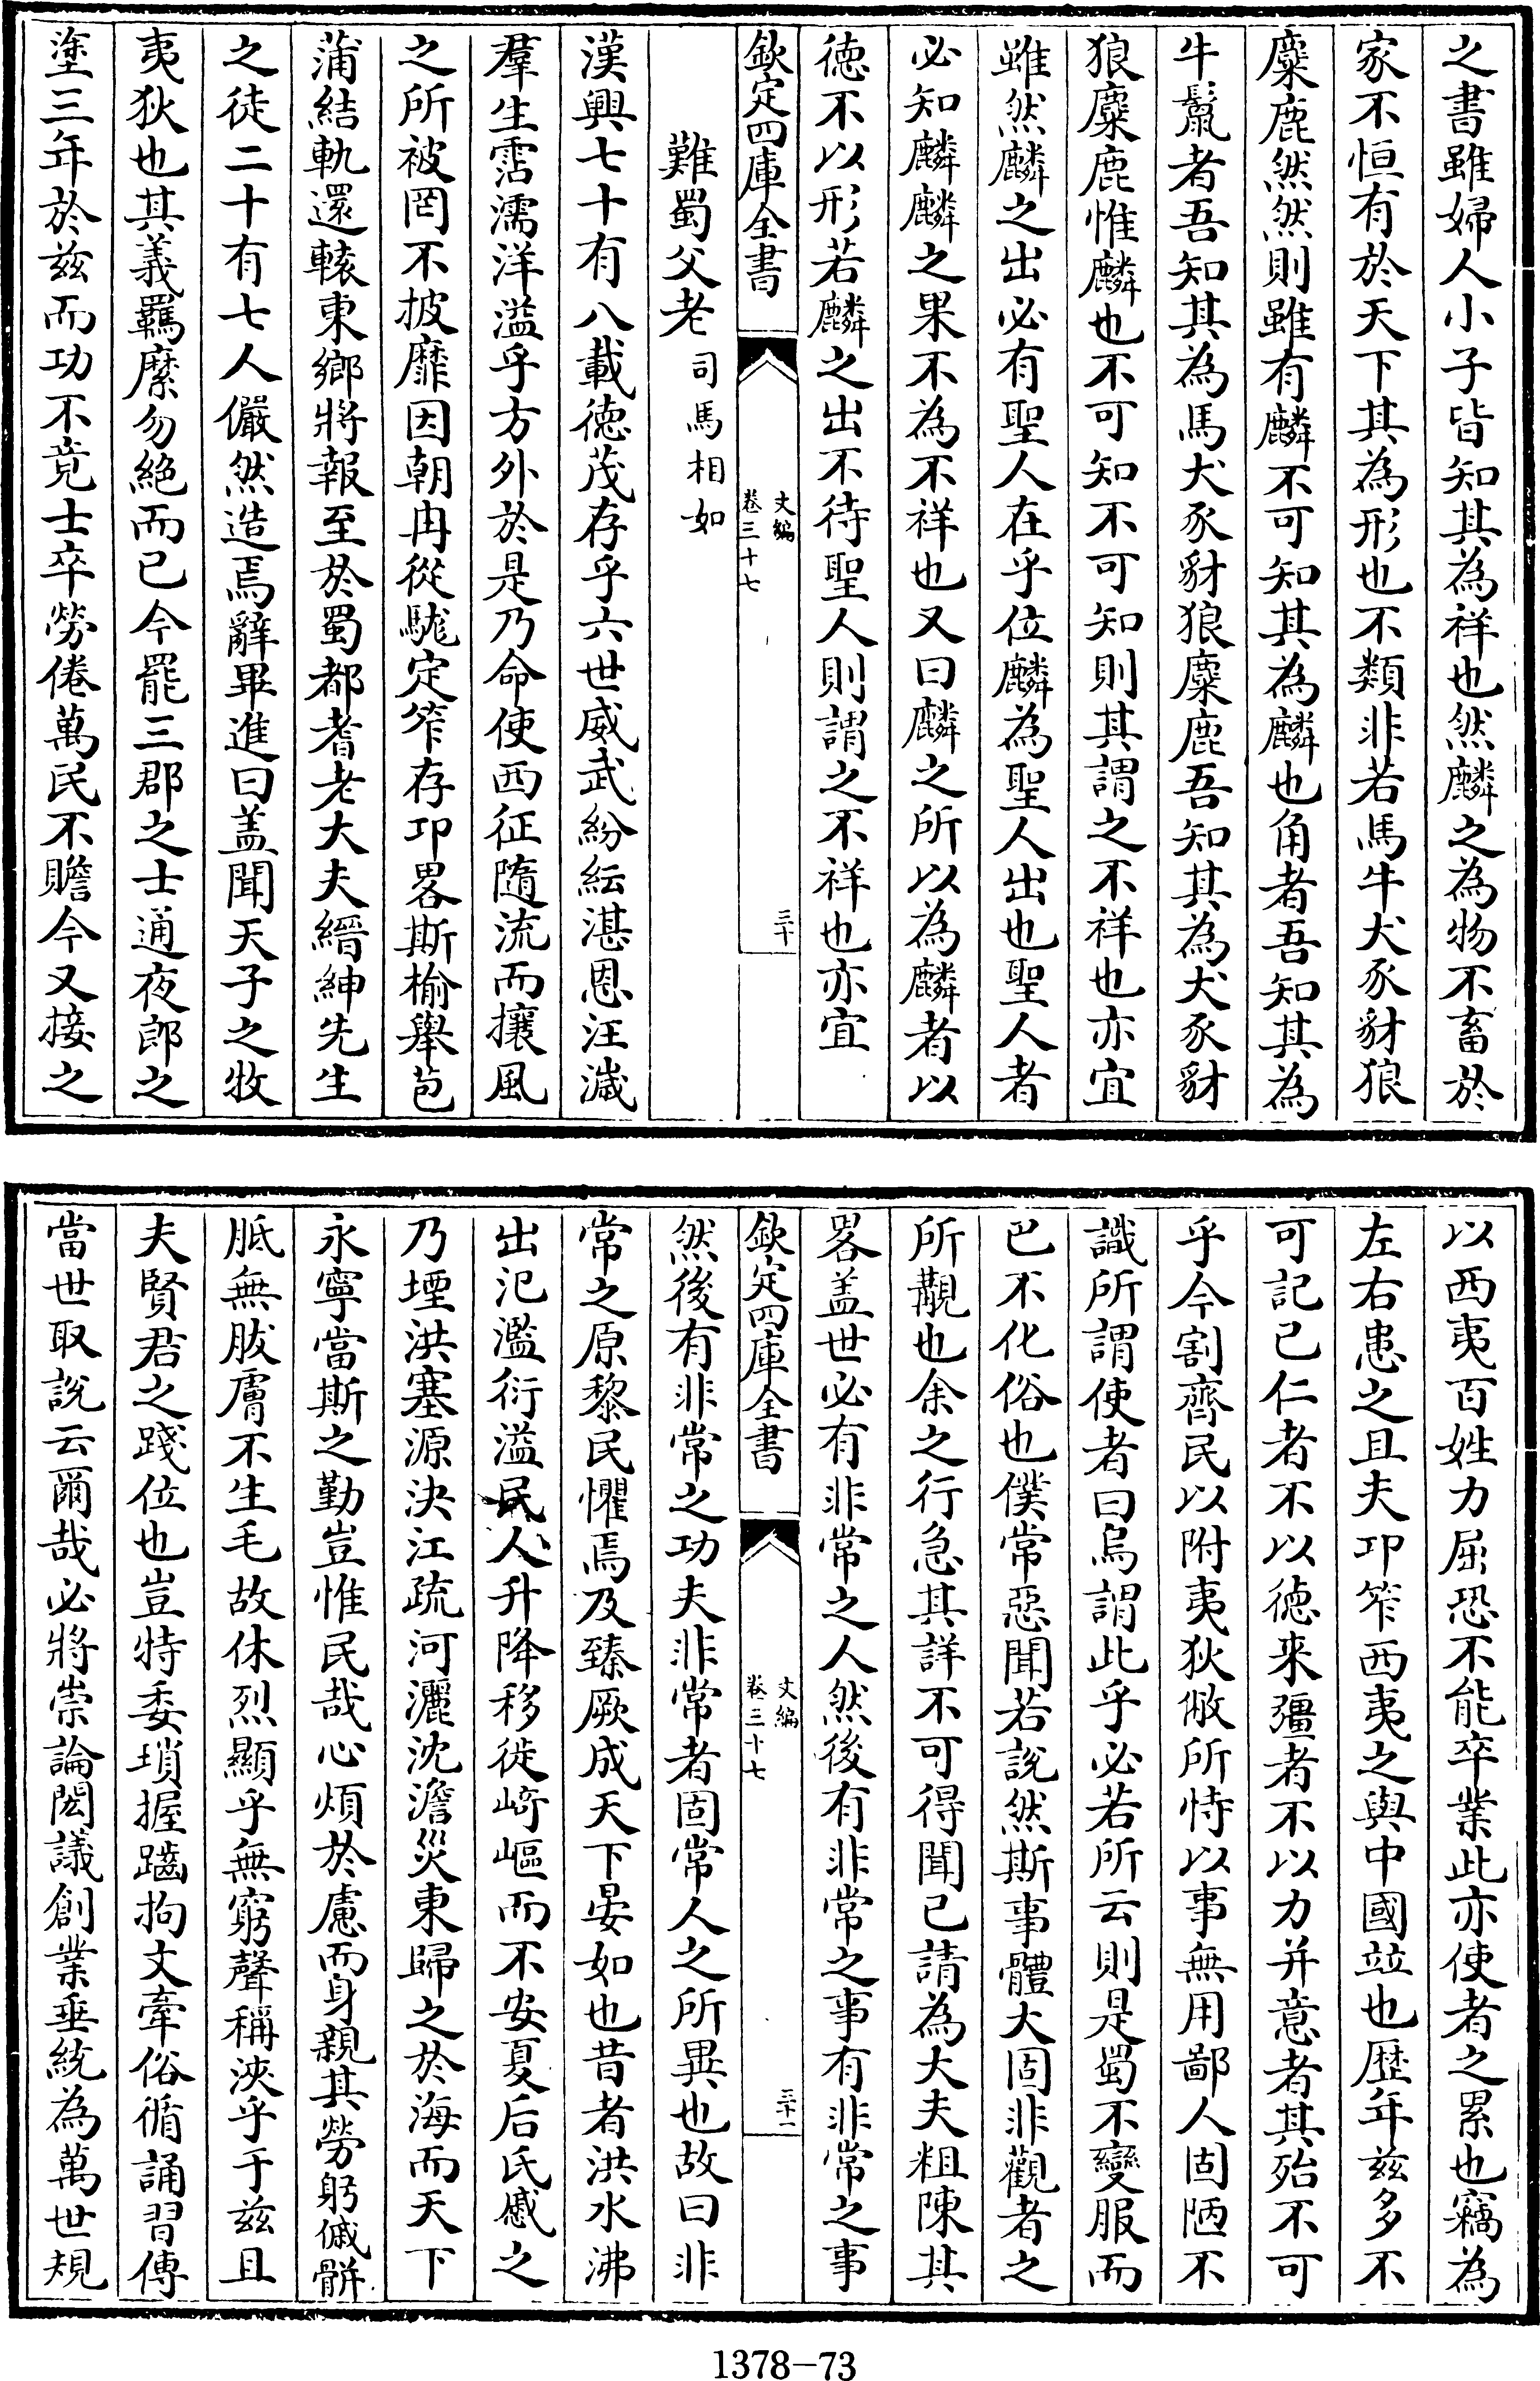 之書雖婦人小子皆知其為祥也然麟之為物不畜於
家不恒有於天下其為形也不類非若馬牛犬豕豺狼
麋鹿然然則雖有麟不可知其為麟也角者吾知其為
牛鬛者吾知其為馬犬豕豺狼麋鹿吾知其為犬豕豺
狼麋鹿惟麟也不可知不可知則其謂之不祥也亦宜
雖然麟之出必有聖人在乎位麟為聖人出也聖人者
必知麟麟之果不為不祥也又曰麟之所以為麟者以
德不以形若麟之出不待聖人則謂之不祥也亦宜
欽定四庫全書
文編
卷三十七
三十
難蜀父老 司馬相如
漢興七十有八載德茂存乎六世威武紛紜湛恩汪濊
羣生霑濡洋溢乎方外於是乃命使西征隨流而攘風
之所被罔不披靡因朝冉從駹定筰存邛畧斯榆舉苞
蒲結軌還轅東鄉將報至於蜀都耆老大夫縉紳先生
之徒二十有七人儼然造焉辭畢進曰盖聞天子之牧
夷狄也其義羈縻勿絕而已今罷三郡之士通夜郎之
塗三年於兹而功不竟士卒勞倦萬民不贍今又接之
以西夷百姓力屈恐不能卒業此亦使者之累也竊為
左右患之且夫邛筰西夷之與中國竝也歷年兹多不
可記已仁者不以德来彊者不以力并意者其殆不可
乎今割齊民以附夷狄敝所恃以事無用鄙人固陋不
識所謂使者曰烏謂此乎必若所云則是蜀不變服而
巴不化俗也僕常惡聞若說然斯事體大固非觀者之
所覯也余之行急其詳不可得聞已請為大夫粗陳其
畧盖世必有非常之人然後有非常之事有非常之事
欽定四庫全書
文編
卷三十七
三十一
然後有非常之功夫非常者固常人之所異也故曰非
常之原黎民懼焉及臻厥成天下晏如也昔者洪水沸
出氾濫衍溢民人升降移徙崎嶇而不安夏后氏慼之
乃堙洪塞源決江疏河灑沈澹災東歸之於海而天下
永寧當斯之勤豈惟民哉心煩於慮而身親其勞躬傶骿
胝無胈膚不生毛故休烈顯乎無窮聲稱浹乎于兹且
夫賢君之踐位也豈特委瑣握齪拘文牽俗循誦習傳
當世取說云爾哉必將崇論閎議創業垂統為萬世規
1378-73